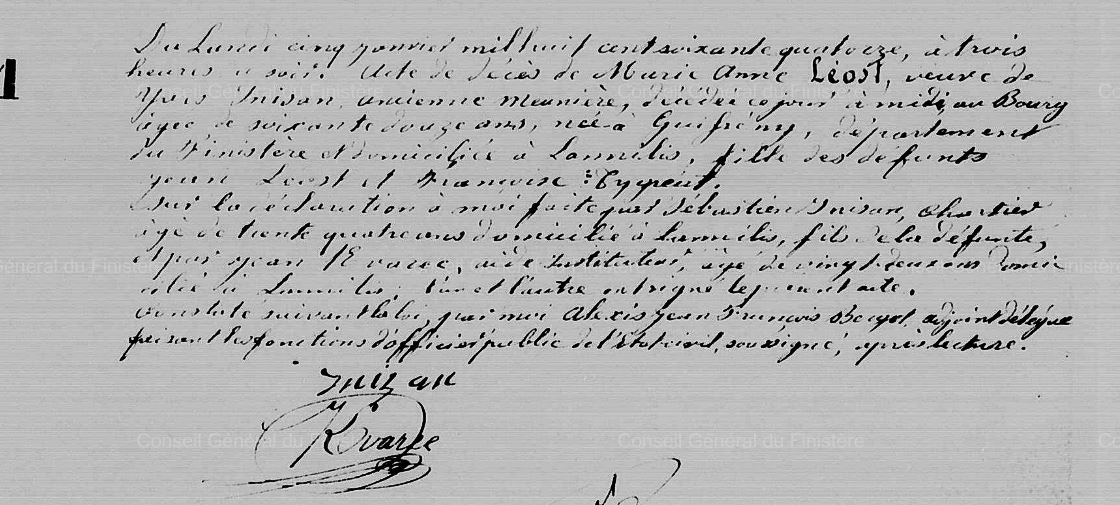 Du Lundi cinq janvier mil huit cent soixante quatorze, à trois
heures du soir. Acte de décès de Marie Anne Léost, veuve de
Yves Inisan, ancienne meunière, décédée ce jour à midi, au Bourg
âgée de soixante douze ans, née à Guiprény, département
du Finistère et domiciliée à Lannilis, fille des défunts
Jean Léost et Françoise
Sur la déclaration à moi faite par Sébastien Inisan, Chartier
âgé de trente quatre ans domicilié à Lannilis, fils de la défunte,
et par Jean Kvarec, aide Instituteur, âgé de vingt deux ans domi
cilié à Lannilis; l'un et l'autre ont signé le présent acte.
Constaté suivant la loi, par moi Alexis Jean François adjoint délégué
faisant les fonctions d'officier public de l'Etat civil, soussigné, après lecture.
Inizan
Kvarec
Conseil Général du Finistère
Conseil Général du Finistère